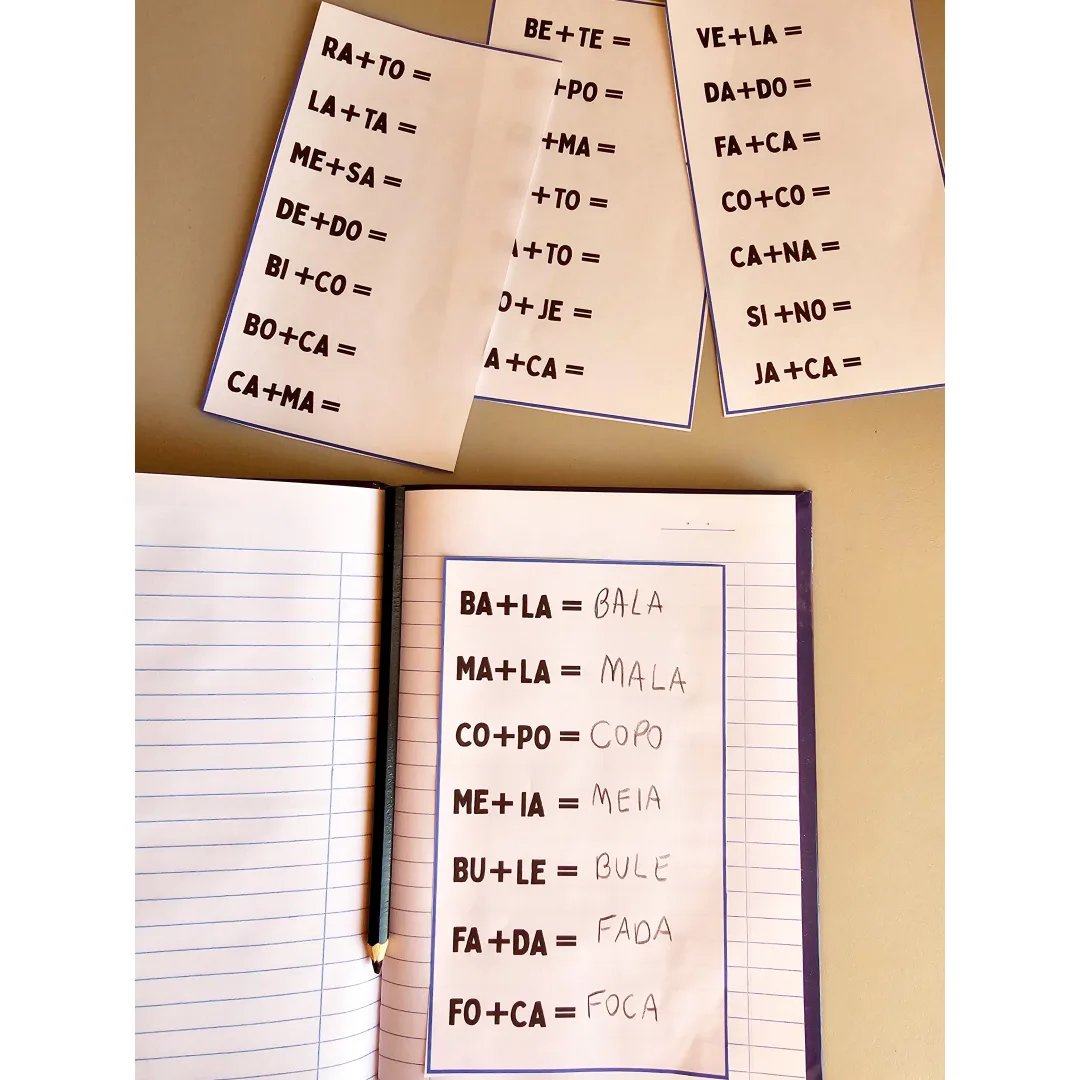 RA+TO =
LA+TA =
ME+SA =
DE+DO =
BI+CO =
BO+CA =
CA+MA =
BE+TE =
+PO =
+MA =
+TO =
+TO =
+JE =
+CA =
VE+LA =
DA+DO =
FA+CA =
CO+CO =
CA+NA =
SI+NO =
JA+CA =
BA+LA = BALA
MA+LA = MALA
CO+PO = COPO
ME+IA = MEIA
BU+LE = BULE
FA+DA = FADA
FO+CA = FOCA